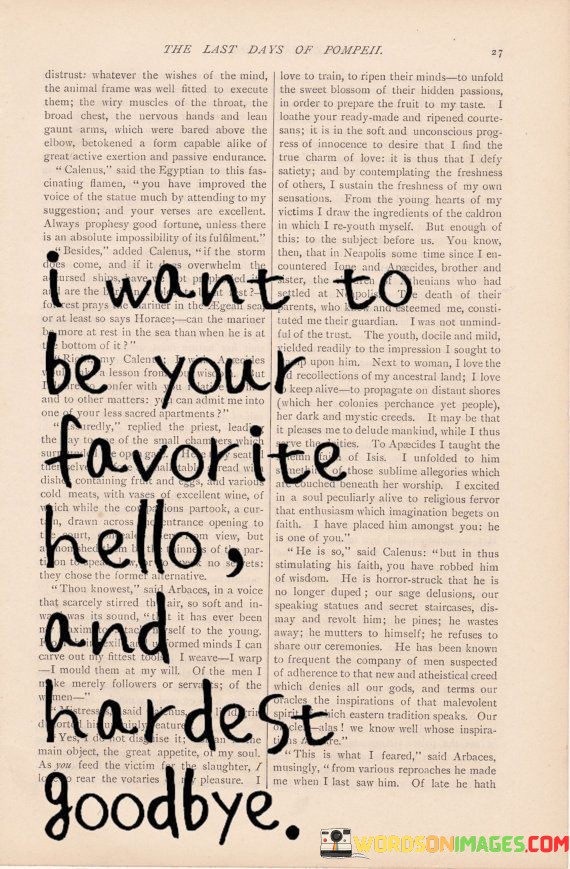 THE LAST DAYS OF POMPEII. 27
distrust: whatever the wishes of the mind,
the animal frame was well fitted to execute
them; the wiry muscles of the throat, the
broad chest, the nervous hands and lean
gaunt arms, which were bared above the
elbow, betokened a form capable alike of
great active exertion and passive endurance.
"Calenus," said the Egyptian to this fas-
cinating flamen, "you have improved the
voice of the statue much by attending to my
suggestion; and your verses are excellent.
Always prophesy good fortune, unless there
is an absolute impossibility of its fulfilment."
"Besides," added Calenus, "if the storm
does come, and if it does overwhelm the
ships,
are the
rest prays the mariner in the Ægean sea,
or at least so says Horace;—can the mariner
be more at rest in the sea than when he is at
the bottom of it?"
my Calenus
a lesson from
confer with
and to other matters: you can admit me into
one of your less sacred apartments?"
replied the priest,
small
open
dishes containing fruit and eggs, and various
cold meats, with vases of excellent wine, of
which while the companions partook, a cur-
tain, drawn across the entrance opening to
view, but
they chose the former alternative.
"Thou knowest," said Arbaces, in a voice
that scarcely stirred the air, so soft and in-
was its sound, that it has ever been
to the young.
minds I can
carve out my fittest tools. I weave—I warp
—I mould them at my will. Of the men I
make merely followers or servants; of the
women—"
said
Yes, I do not disguise it;
main object, the great appetite, of my soul.
As you feed the victim for the slaughter, I
love to rear the votaries of my pleasure. I
love to train, to ripen their minds—to unfold
the sweet blossom of their hidden passions,
in order to prepare the fruit to my taste. I
loathe your ready-made and ripened courte-
sans; it is in the soft and unconscious prog-
ress of innocence to desire that I find the
true charm of love: it is thus that I defy
satiety; and by contemplating the freshness
of others, I sustain the freshness of my own
sensations. From the young hearts of my
victims I draw the ingredients of the caldron
in which I re-youth myself. But enough of
this: to the subject before us. You know,
then, that in Neapolis some time since I en-
countered Ione and Apæcides, brother and
sister, the children of Athenians who had
settled at Neapolis. The death of their
parents, who knew and esteemed me, consti-
tuted me their guardian. I was not unmind-
ful of the trust. The youth, docile and mild,
yielded readily to the impression I sought to
stamp upon him. Next to woman, I love the
old recollections of my ancestral land; I love
to keep alive—to propagate on distant shores
(which her colonies perchance yet people),
her dark and mystic creeds. It may be that
it pleases me to delude mankind, while I thus
serve the deities. To Apæcides I taught the
faith of Isis. I unfolded to him
something of those sublime allegories which
are couched beneath her worship. I excited
in a soul peculiarly alive to religious fervor
that enthusiasm which imagination begets on
faith. I have placed him amongst you: he
is one of you."
"He is so," said Calenus: "but in thus
stimulating his faith, you have robbed him
of wisdom. He is horror-struck that he is
no longer duped; our sage delusions, our
speaking statues and secret staircases, dis-
may and revolt him; he pines; he wastes
away; he mutters to himself; he refuses to
share our ceremonies. He has been known
to frequent the company of men suspected
of adherence to that new and atheistical creed
which denies all our gods, and terms our
oracles the inspirations of that malevolent
spirit of which eastern tradition speaks. Our
oracles—alas! we know well whose inspira-
tions
"This is what I feared," said Arbaces,
musingly, "from various reproaches he made
me when I last saw him. Of late he hath
i want to
be your
favorite
hello,
and
hardest
goodbye.
WORDSONIMAGES.COM